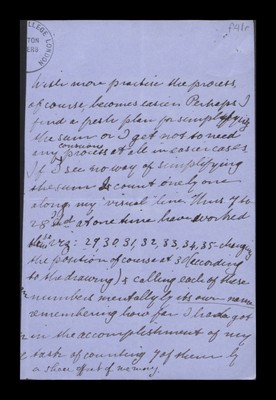 LLEGE LONDON
With more practice the process,
of course, becomes easier. Perhaps I
find a fresh plan for simplifying
the sum or I get not to need
any conscious process at all in easier cases
If I see no way of simplifying
the sum I count one by one
along my visual line. Thus 7 to
28 I'd at one time have worked
viz: 29, 30, 31, 32, 33, 34, 35 - changing
the position of course at 30 (according
to the drawing) & calling each of these
numbers mentally by its own name
remembering how far I had got
in the accomplishment of my
task of counting 7 of them by
a sheer effort of memory.